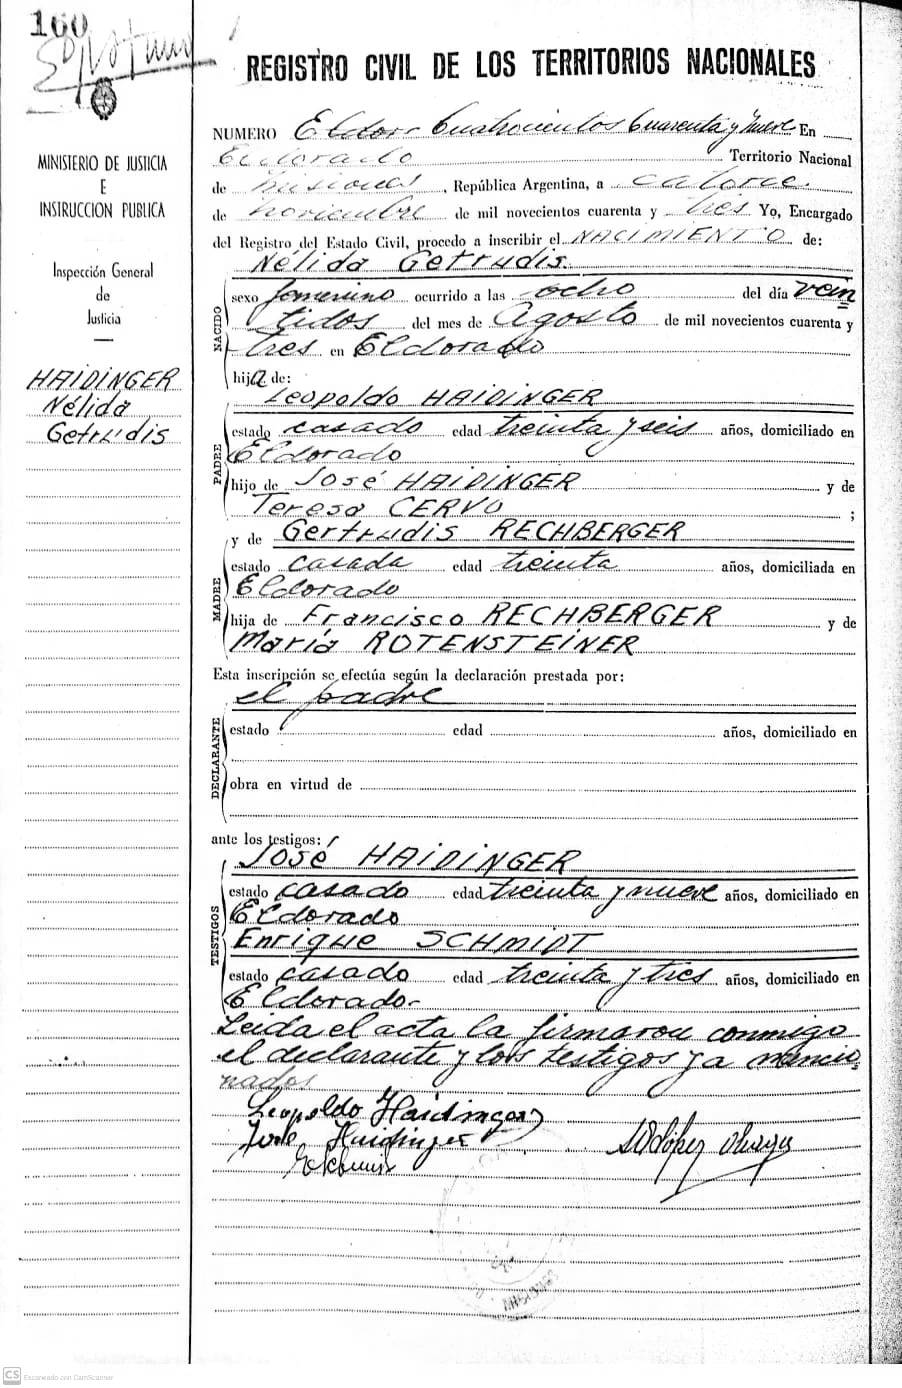 160
REGISTRO CIVIL DE LOS TERRITORIOS NACIONALES
MINISTERIO DE JUSTICIA
E
INSTRUCCION PUBLICA
Inspección General
de
Justicia
HAIDINGER
Nélida
Getrudis
NUMERO Cuatrocientos Cuarenta y Nueve En
Eldorado Territorio Nacional
de Misiones, República Argentina, a catorce
de noviembre de mil novecientos cuarenta y tres Yo, Encargado
del Registro del Estado Civil, procedo a inscribir el NACIMIENTO de:
Nélida Getrudis.
NACIDO
sexo femenino ocurrido a las ocho del día vein
tidos del mes de Agosto de mil novecientos cuarenta y
tres en Eldorado
hija de:
Leopoldo HAIDINGER
PADRE
estado casado edad treinta y seis años, domiciliado en
Eldorado
hijo de José HAIDINGER y de
Teresa CERVO ;
y de Gertrudis RECHBERGER
MADRE
estado casada edad treinta años, domiciliada en
Eldorado
hija de Francisco RECHBERGER y de
María ROTENSTEINER
Esta inscripción se efectúa según la declaración prestada por:
el padre
DECLARANTE
estado edad años, domiciliado en
obra en virtud de
ante los testigos:
José HAIDINGER
TESTIGOS
estado casado edad treinta y nueve años, domiciliado en
Eldorado
Enrique SCHMIDT
estado casado edad treinta y tres años, domiciliado en
Eldorado-
Leida el acta la firmaron conmigo
el declarante y los testigos ya mencio
nados
Leopoldo Haidinger
José Haidinger
MISIONES
CS Escaneado con CamScanner